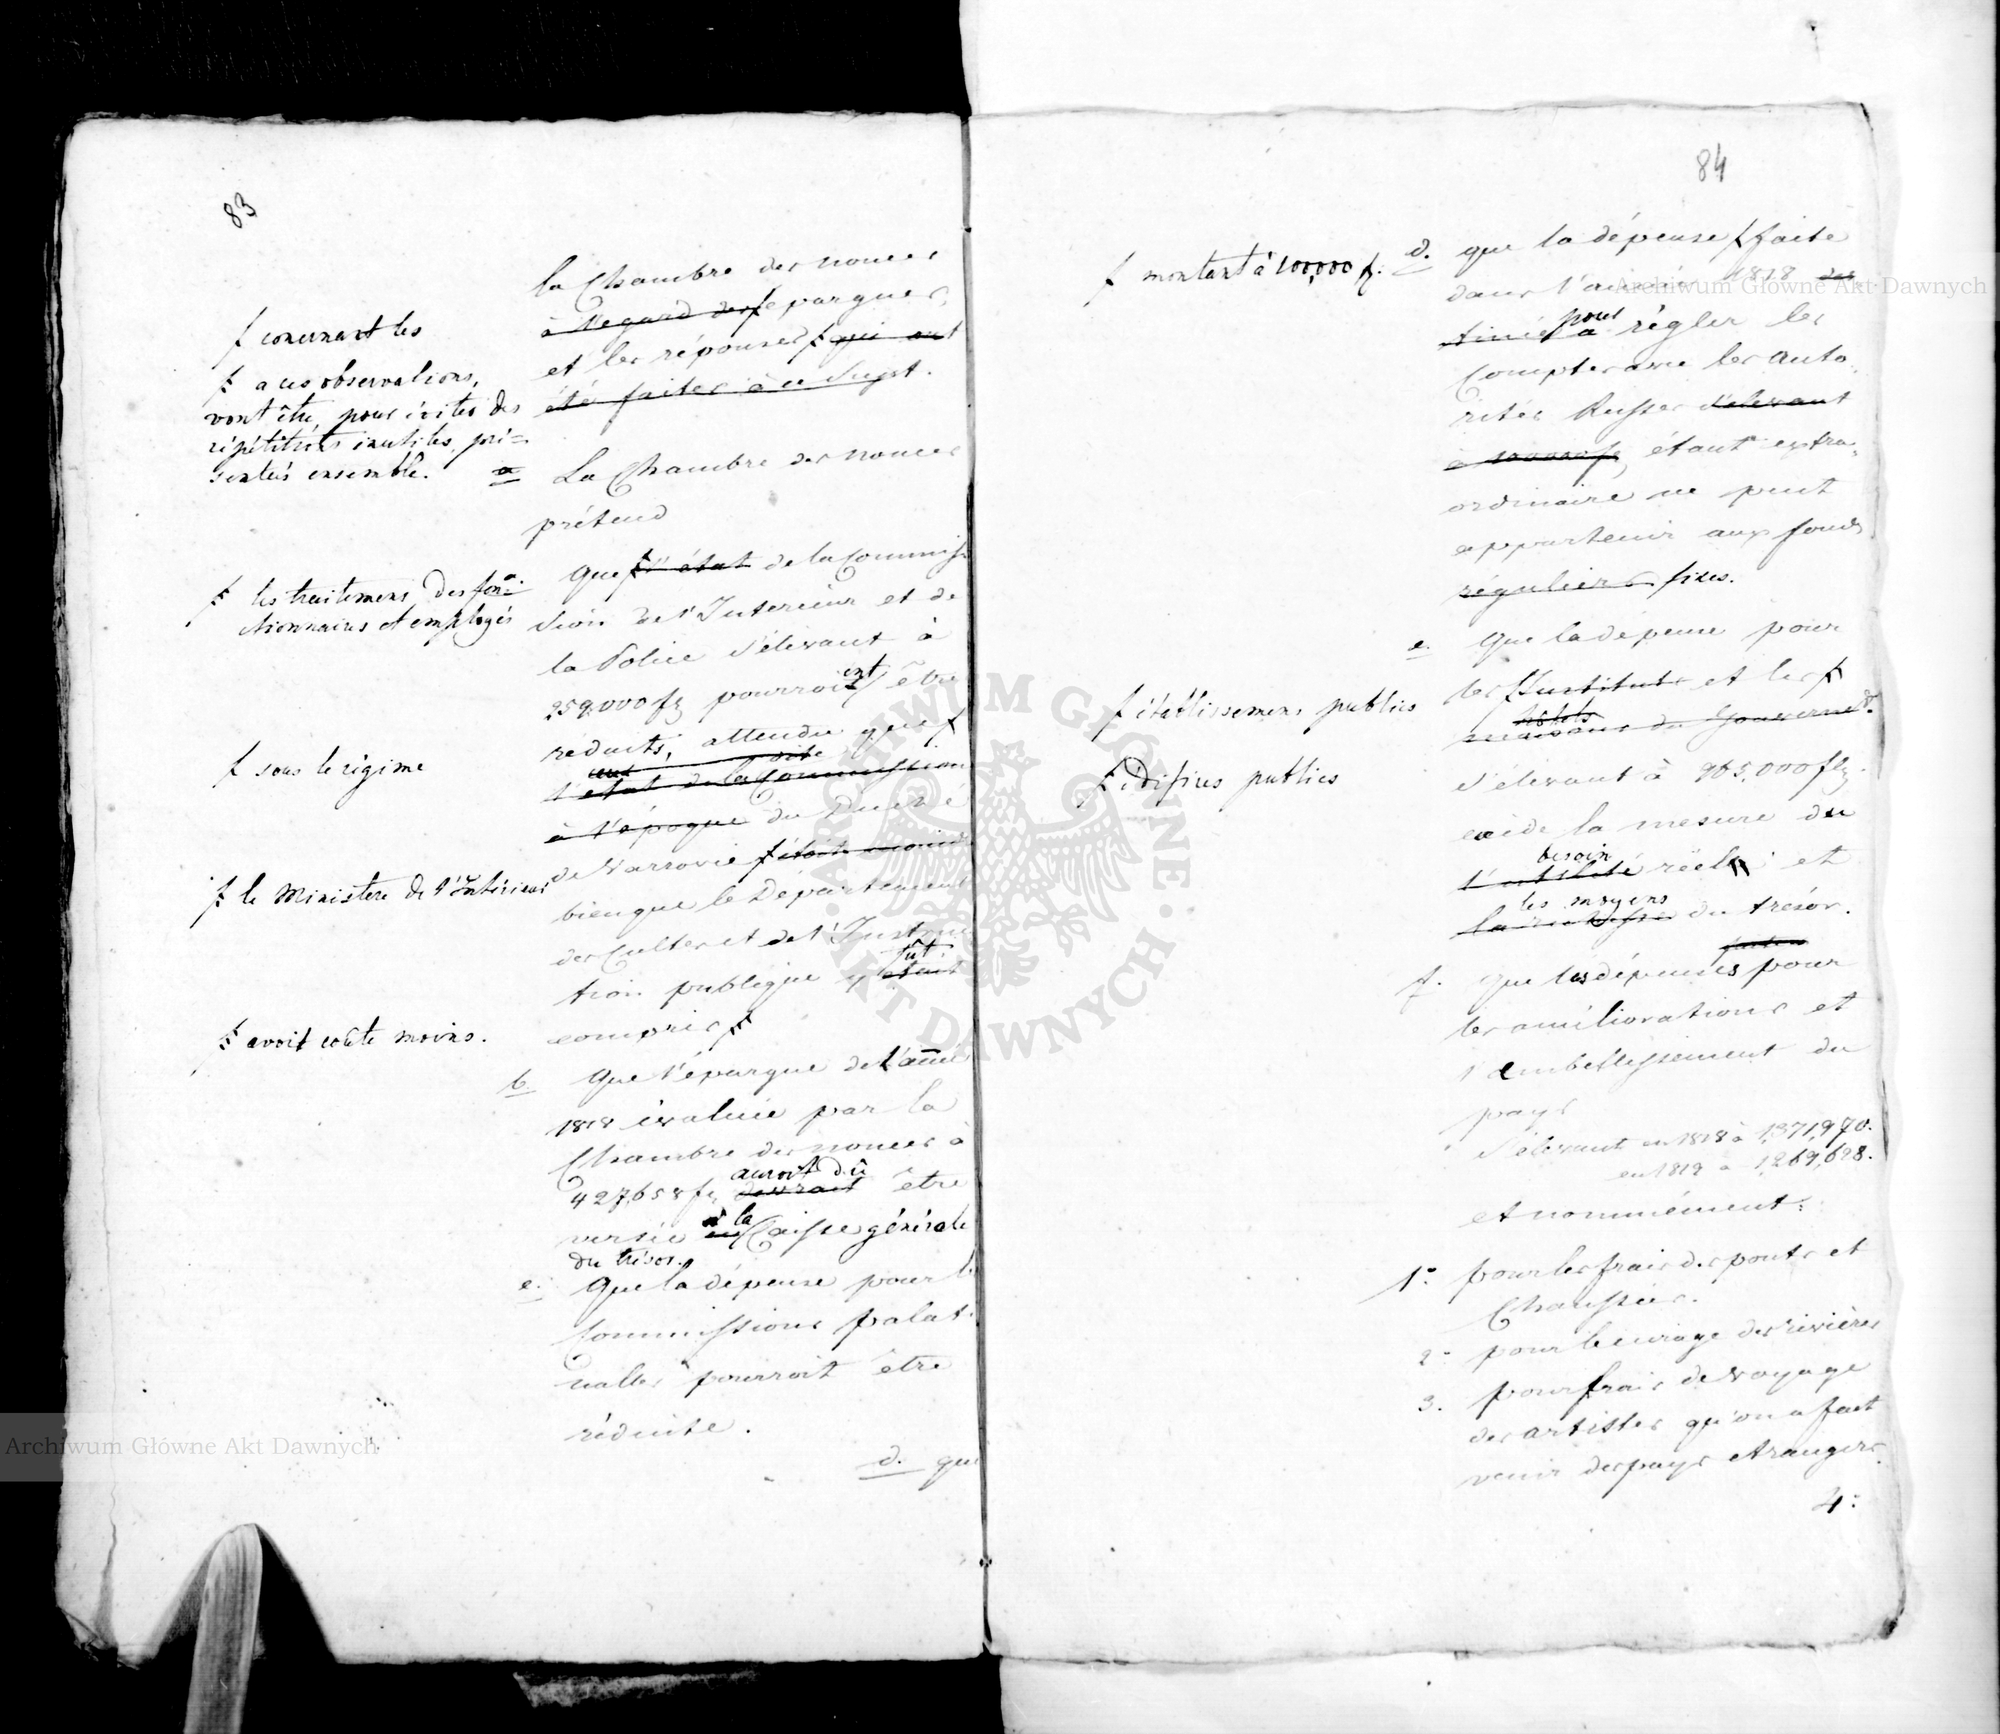 83
la Chambre des nonces
à l'egard des ƒ epargnes,
et les réponses ƒ qui ont
été faites à ce Sujet.
ƒ concernant les
ƒ a ces observations,
vont être, pour éviter des
répétitions inutiles, pré=
sentées ensemble.
a La Chambre des nonces
prétend
Que ƒ l'état de la Commis
sion de l'Interieur et de
la Police s'élevant à
259,000 fl pourroient être
réduits, attendu que ƒ
l'état de la Commission
à l'époque du Duché
de Varsovie ƒ étoit moind
bien que le Département
des Cultes et de l'Instruc
tion publique y était
fût
compris ƒ
ƒ les traitemens des fon=
ctionnaires et employés
ƒ sous le régime
ƒ le Ministere de l'Intérieur
ƒ avoit coûté moins.
b. Que l'épargne de l'année
1818 évaluée par la
Chambre des nonces à
auroit dû
427,658 fl devrait être
à la
versée en Caisse générale
du trésor.
c. Que la dépense pour le
Commissions palati
nalles pourroit être
réduite.
d. que
84
d. que la dépense ƒ faite
dans l'année 1818 des
pour
tinée à régler les
Comptes avec les auto
rités Russes s'élevant
à 100000 fl, étant extra=
ordinaire ne peut
appartenir aux fonds
réguliers fixes.
ƒ montant à 100,000 fl.
e. Que la dépense pour
les ƒ Instituts et les ƒ
hôtels
maisons du Gouvernem.
s'élevant à 965,000 fl.
excède la mesure du
besoin
l'utilité réel et
les moyens
la richesse du trésor.
ƒ établissemens publics
ƒ édifices publics
f. Que les dépenses pour
les améliorations et
l'embellissement du
pays
s'élevant en 1818 à 1,371,970.
en 1819 a 1,269,628.
et nommément:
1° pour les frais des ponts et
Chaussées.
2° pour le curage des rivières
3. pour frais de voyage
des artistes qu'on a fait
venir des pays etrangers.
4°
Archiwum Główne Akt Dawnych
Archiwum Główne Akt Dawnych
ARCHIWUM GŁÓWNE AKT DAWNYCH